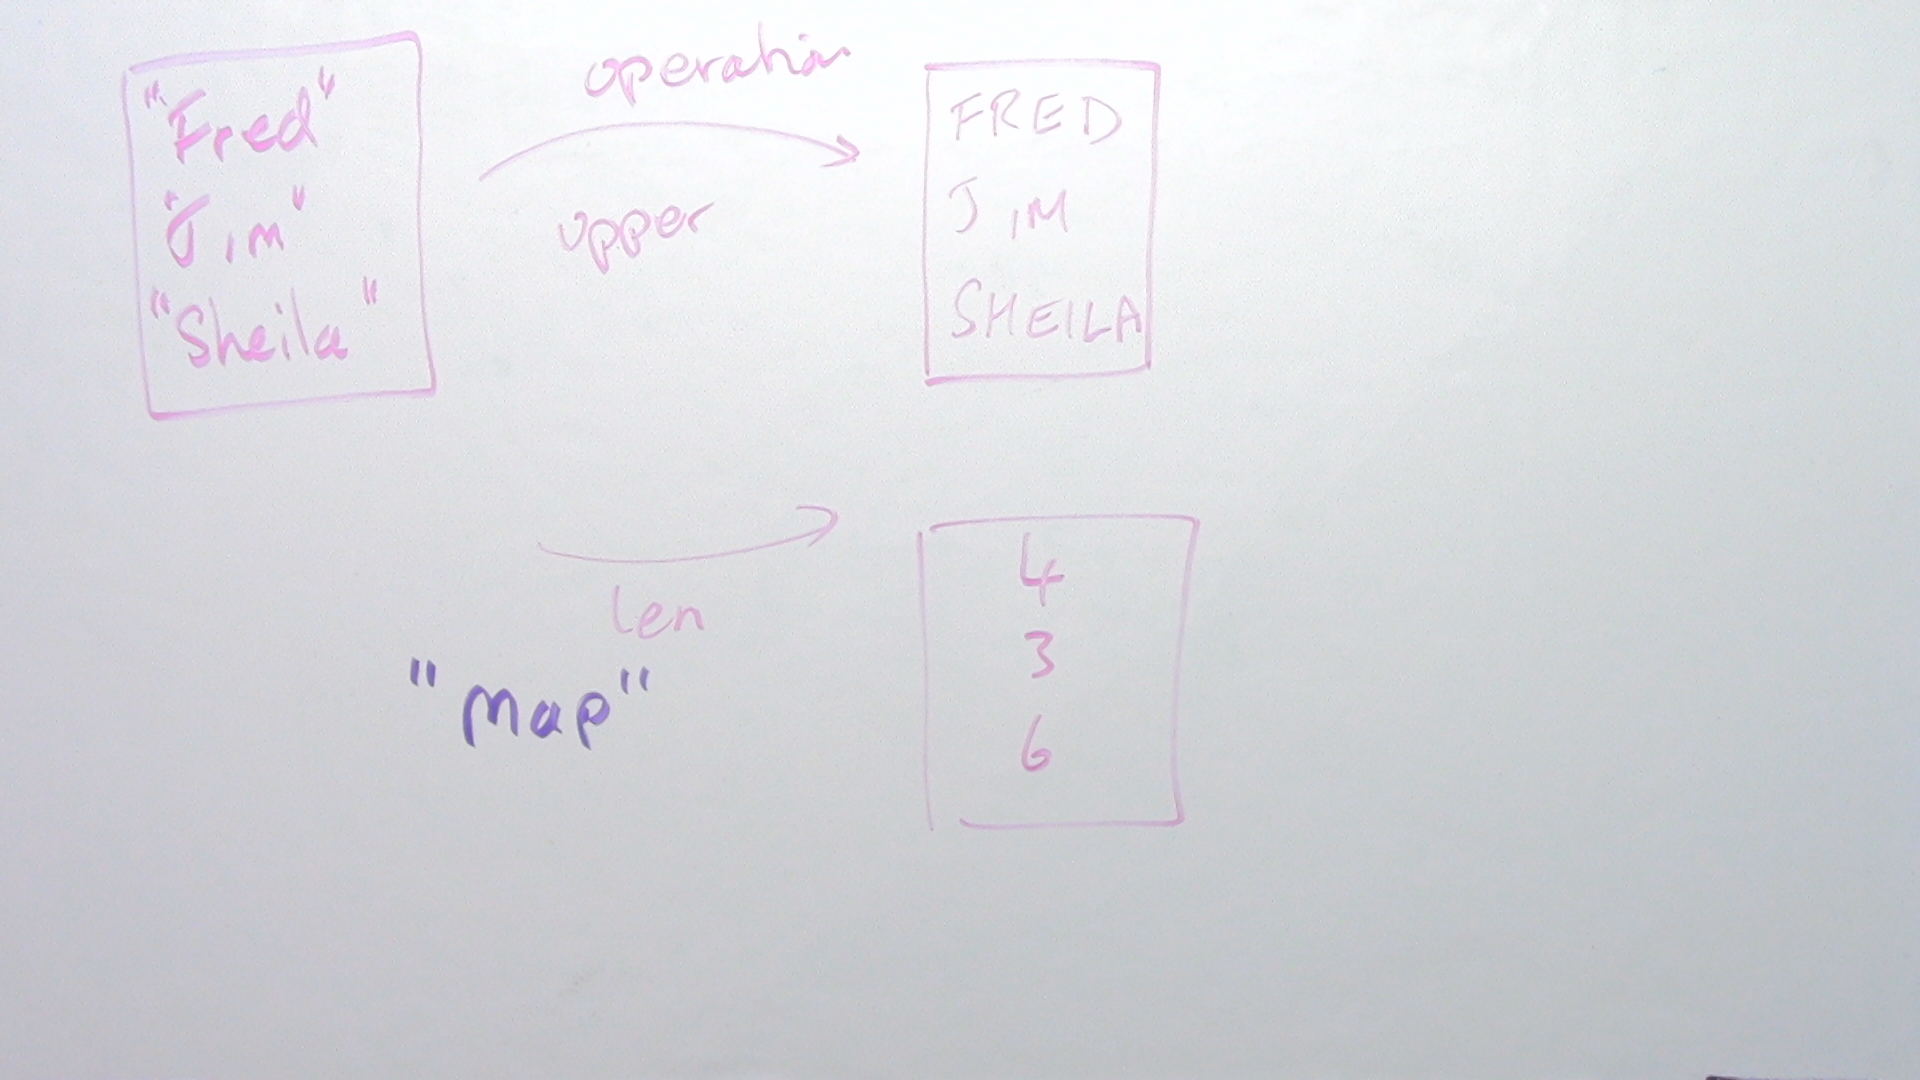 "Fred"
"Jim"
"Sheila"
operation
upper
FRED
JIM
SHEILA
len
"Map"
4
3
6